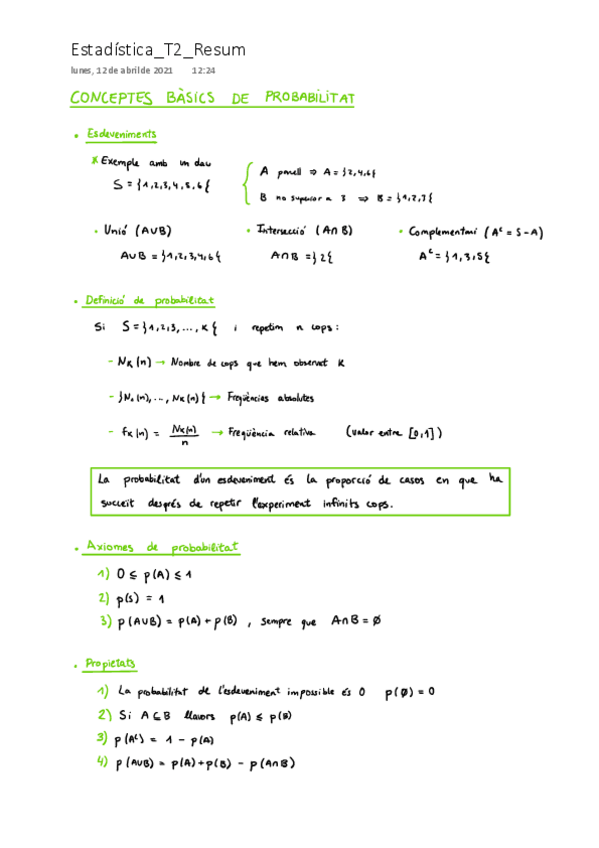 Estadística_T2_Resum
lunes, 12 de abril de 2021 12:24
CONCEPTES BÀSICS DE PROBABILITAT
• Esdeveniments
* Exemple amb un dau
S = }1,2,3,4,5,6{
A parell ⇒ A = }2,4,6{
B no superior a 3 ⇒ B = }1,2,3{
• Unió (A∪B) • Intersecció (A∩B) • Complementari (Aᶜ = S-A)
A∪B = }1,2,3,4,6{ A∩B = }2{ Aᶜ = }1,3,5{
• Definició de probabilitat
Si S = }1,2,3,...,K{ i repetim n cops:
- Nₖ(n) → Nombre de cops que hem observat K
- }N₁(n),..., Nₖ(n){ → Freqüències absolutes
- fₖ(n) = Nₖ(n)/n → Freqüència relativa (valor entre [0,1])
La probabilitat d'un esdeveniment és la proporció de casos en que ha
succeït després de repetir l'experiment infinits cops.
• Axiomes de probabilitat
1) 0 ≤ p(A) ≤ 1
2) p(S) = 1
3) p(A∪B) = p(A) + p(B), sempre que A∩B = ∅
• Propietats
1) La probabilitat de l'esdeveniment impossible és 0 p(∅) = 0
2) Si A ⊆ B llavors p(A) ≤ p(B)
3) p(Aᶜ) = 1 - p(A)
4) p(A∪B) = p(A) + p(B) - p(A∩B)